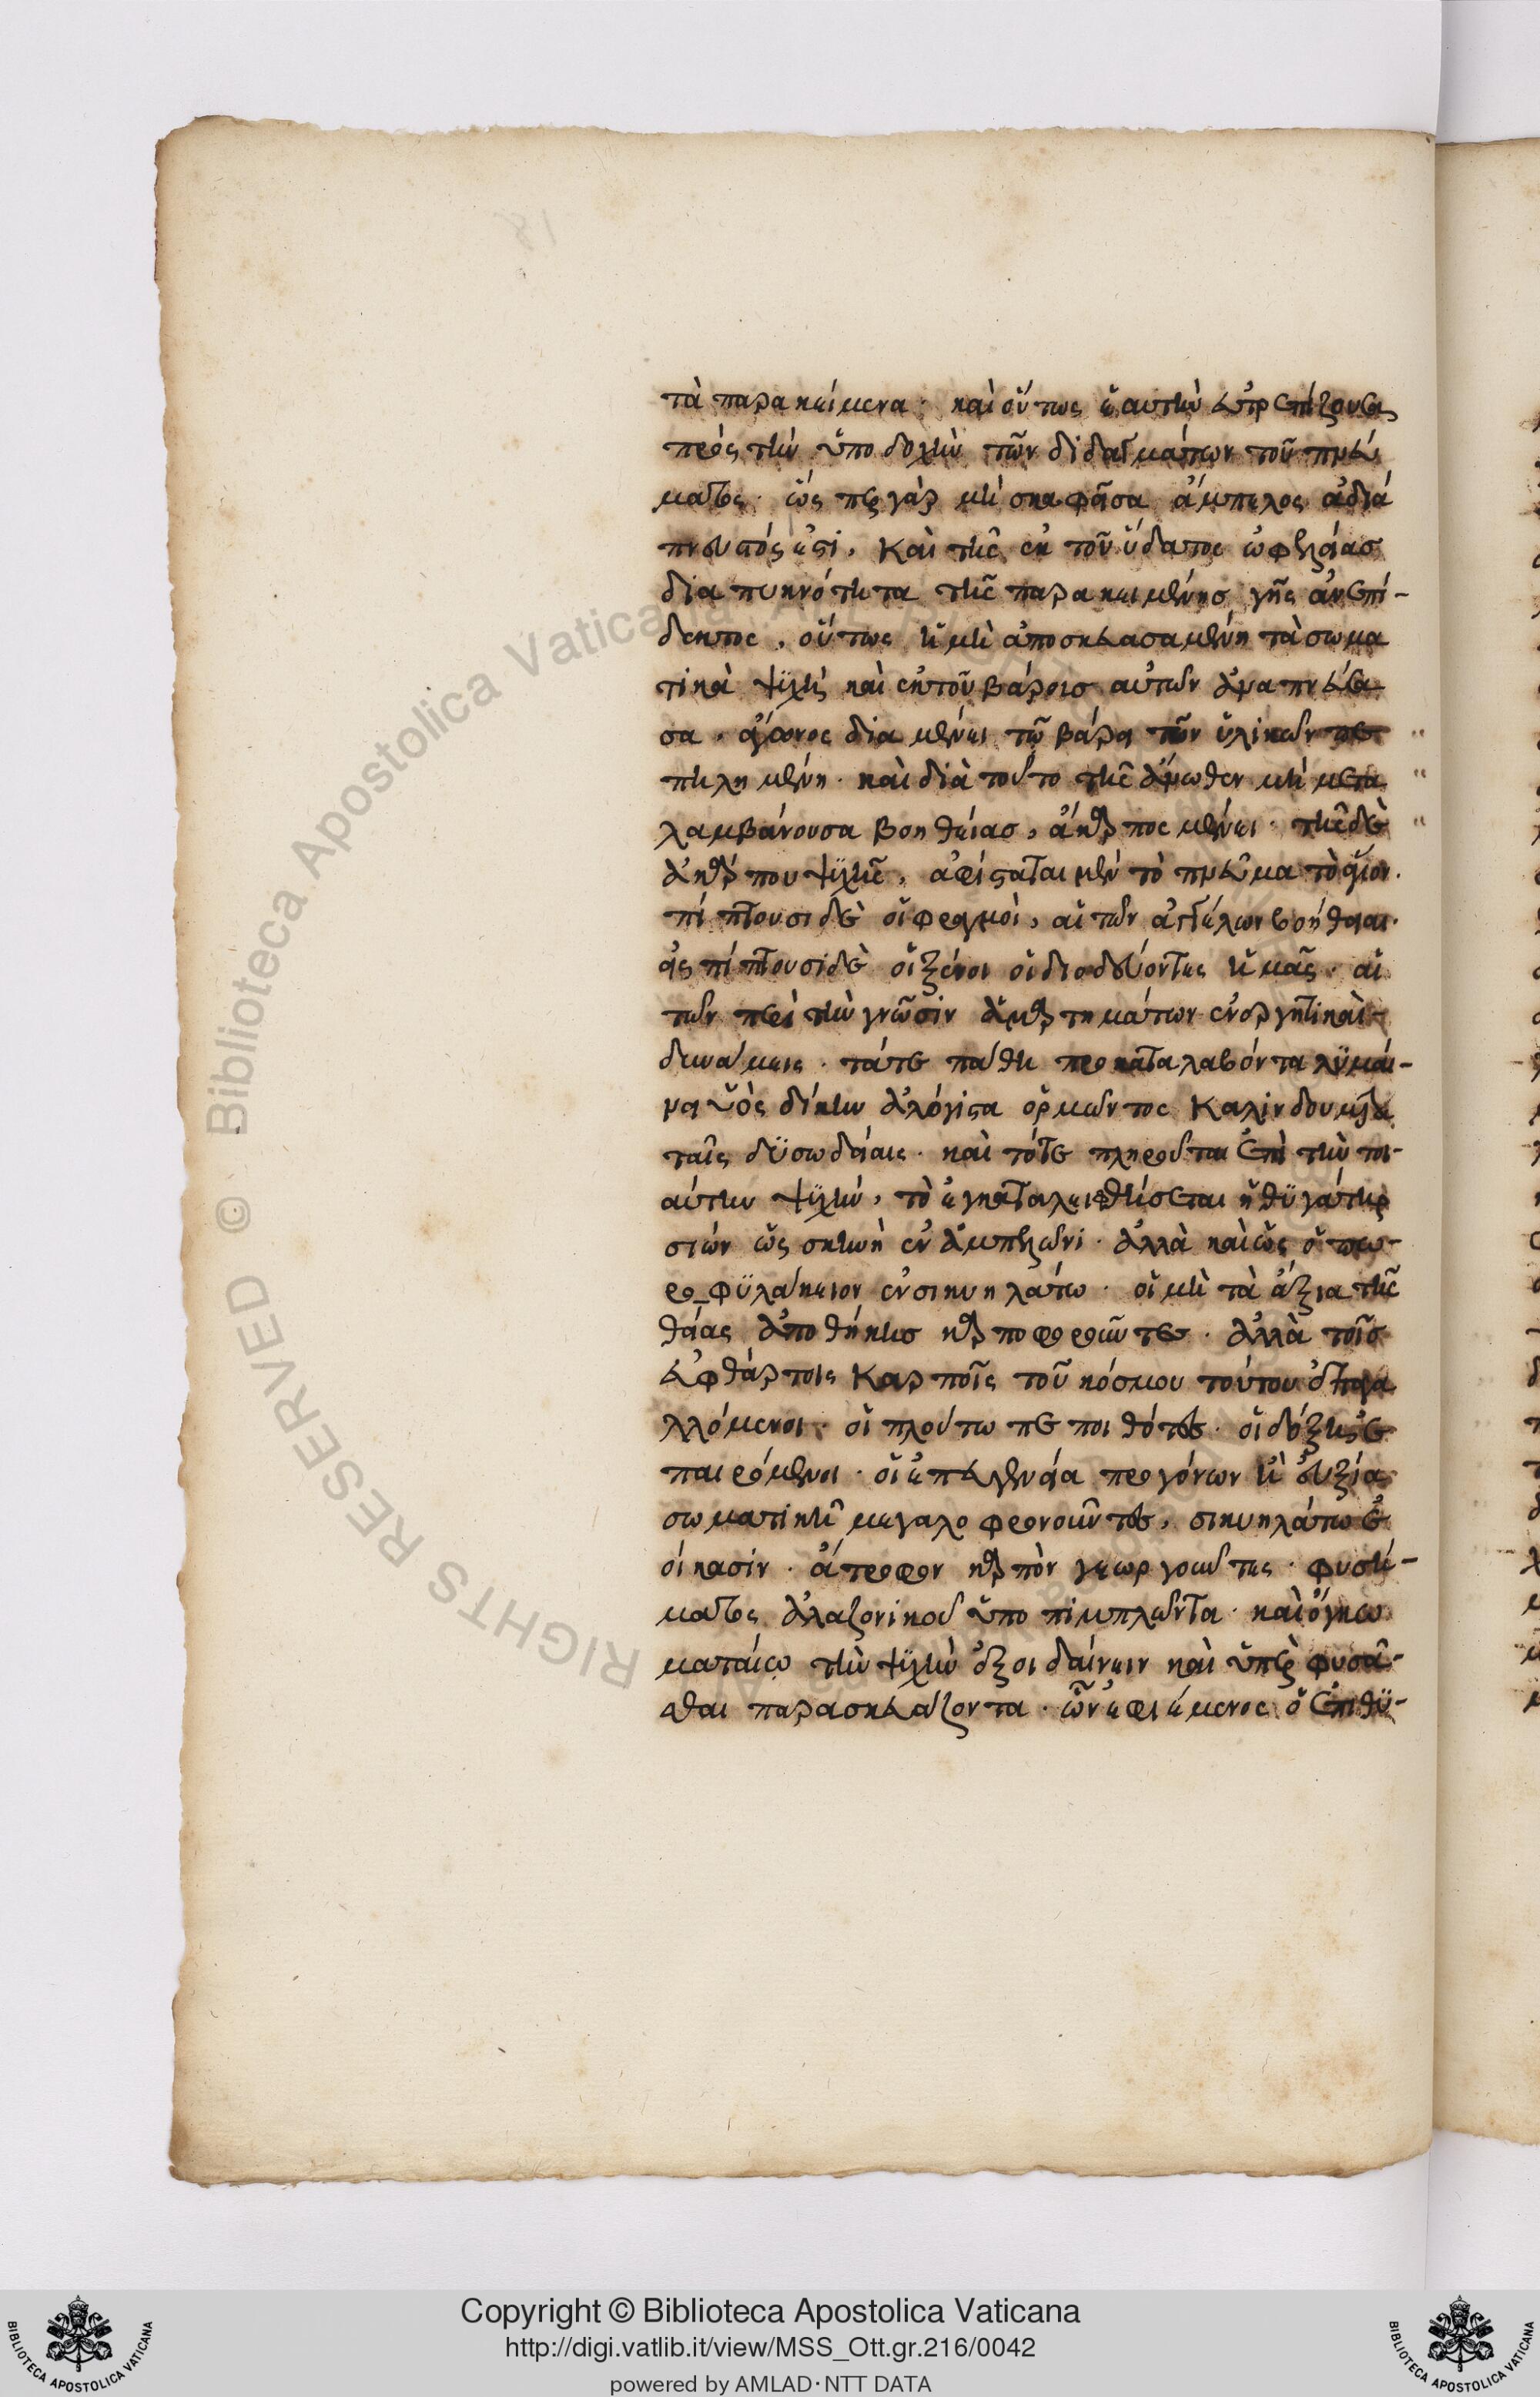 τὰ παρακείμενα· καὶ οὕτως ἑαυτὴν εὐτρεπίζουσα
πρὸς τὴν ὑποδοχὴν τῶν διδαγμάτων τοῦ πνεύ
ματος· ὥσπερ γὰρ μὴ σκαφεῖσα ἄμπελος ἀδιά
πνευστός ἐστι, καὶ τῆς ἐκ τοῦ ὕδατος ὠφελείας
δια πυκνότητα τῆς παρακειμένης γῆς ἀνεπί-
δεκτος, οὕτως ἡ μὴ ἀποσκευασαμένη τὰ σωμα
τικὰ ψυχὴ καὶ ἐκ τοῦ βάρους αὐτῶν ἀναπνεύσα
σα, ἄγονος διαμένει τῷ βάρει τῶν ὑλικῶν
πιλημένη· καὶ διὰ τοῦτο τῆς ἄνωθεν μὴ μετα
λαμβάνουσα βοηθείας, ἄκαρπος μένει· τῆς δὲ
ἀκάρπου ψυχῆς, ἀφίσταται μὲν τὸ πνεῦμα τὸ ἅγιον·
πίπτουσι δὲ οἱ φραγμοὶ, αἱ τῶν ἀγγέλων βοήθειαι·
εἰσπίπτουσι δὲ οἱ ξένοι οἱ διοδεύοντες ἡμᾶς· αἱ
τῶν περὶ τὴν γνῶσιν ἁμαρτημάτων ἐνεργητικαὶ
δυνάμεις· τά τε πάθη προκαταλαβόντα λυμαί-
νει ὑὸς δίκην ἀλόγιστα ὁρμῶντος καλινδουμένα
ταῖς δυσωδίαις· καὶ τότε πληροῦται ἐπὶ τὴν τοι-
αύτην ψυχήν, τὸ ἐγκαταλειφθήσεται ἡ θυγάτηρ
σιὼν ὡς σκηνὴ ἐν ἀμπελῶνι· ἀλλὰ καὶ ὡς ὀπω-
ροφυλάκιον ἐν σικυηλάτω· οἱ μὴ τὰ ἄξια τῆς
θείας ἀποθήκης καρποφοροῦντες· ἀλλὰ τοῖς
εὐφθάρτοις καρποῖς τοῦ κόσμου τούτου
λλόμενοι· οἱ πλούτω πεποιθότες· οἱ δόξης ἐ
παιρόμενοι· οἱ ἐπ εὐγενεία προγόνων ἢ εὐεξία
σωματικῆ μεγαλοφρονοῦντες, σικυηλάτω ἐ
οίκασιν· ἄτροφον καρπὸν γεωργοῦντες· φυσή-
ματος ἀλαζονικοῦ ὑποπιμπλῶντα· καὶ ὄγκω
ματαίω τὴν ψυχὴν ἐξοιδαίνειν καὶ ὑπερφυσᾶ-
σθαι παρασκευάζοντα· ὧν ἐφιέμενος ὁ ἐπιθυ-
Copyright © Biblioteca Apostolica Vaticana
http://digi.vatlib.it/view/MSS_Ott.gr.216/0042
powered by AMLAD·NTT DATA